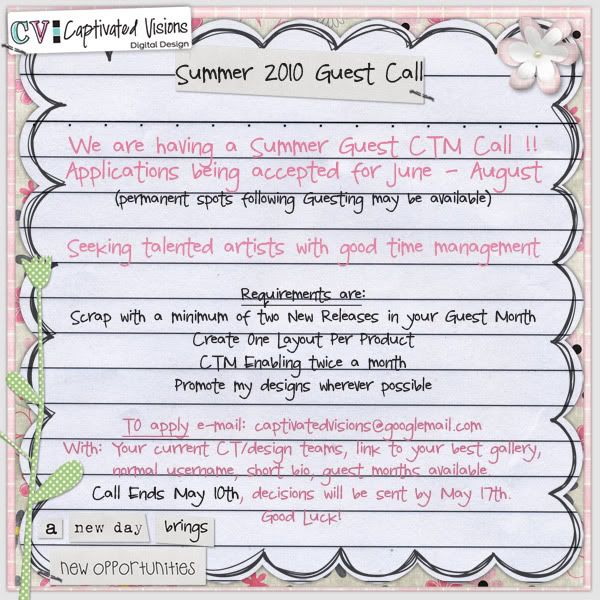 CV: Captivated Visions
Digital Design
Summer 2010 Guest Call
We are having a Summer Guest CTM Call !!
Applications being accepted for June - August
(permanent spots following Guesting may be available)
Seeking talented artists with good time management
Requirements are:
Scrap with a minimum of two New Releases in your Guest Month
Create One Layout Per Product
CTM Enabling twice a month
Promote my designs wherever possible
To apply e-mail: captivatedvisions@googlemail.com
With: Your current CT/design teams, link to your best gallery,
normal username, short bio, guest months available
Call Ends May 10th, decisions will be sent by May 17th.
Good Luck!
a new day brings
new opportunities